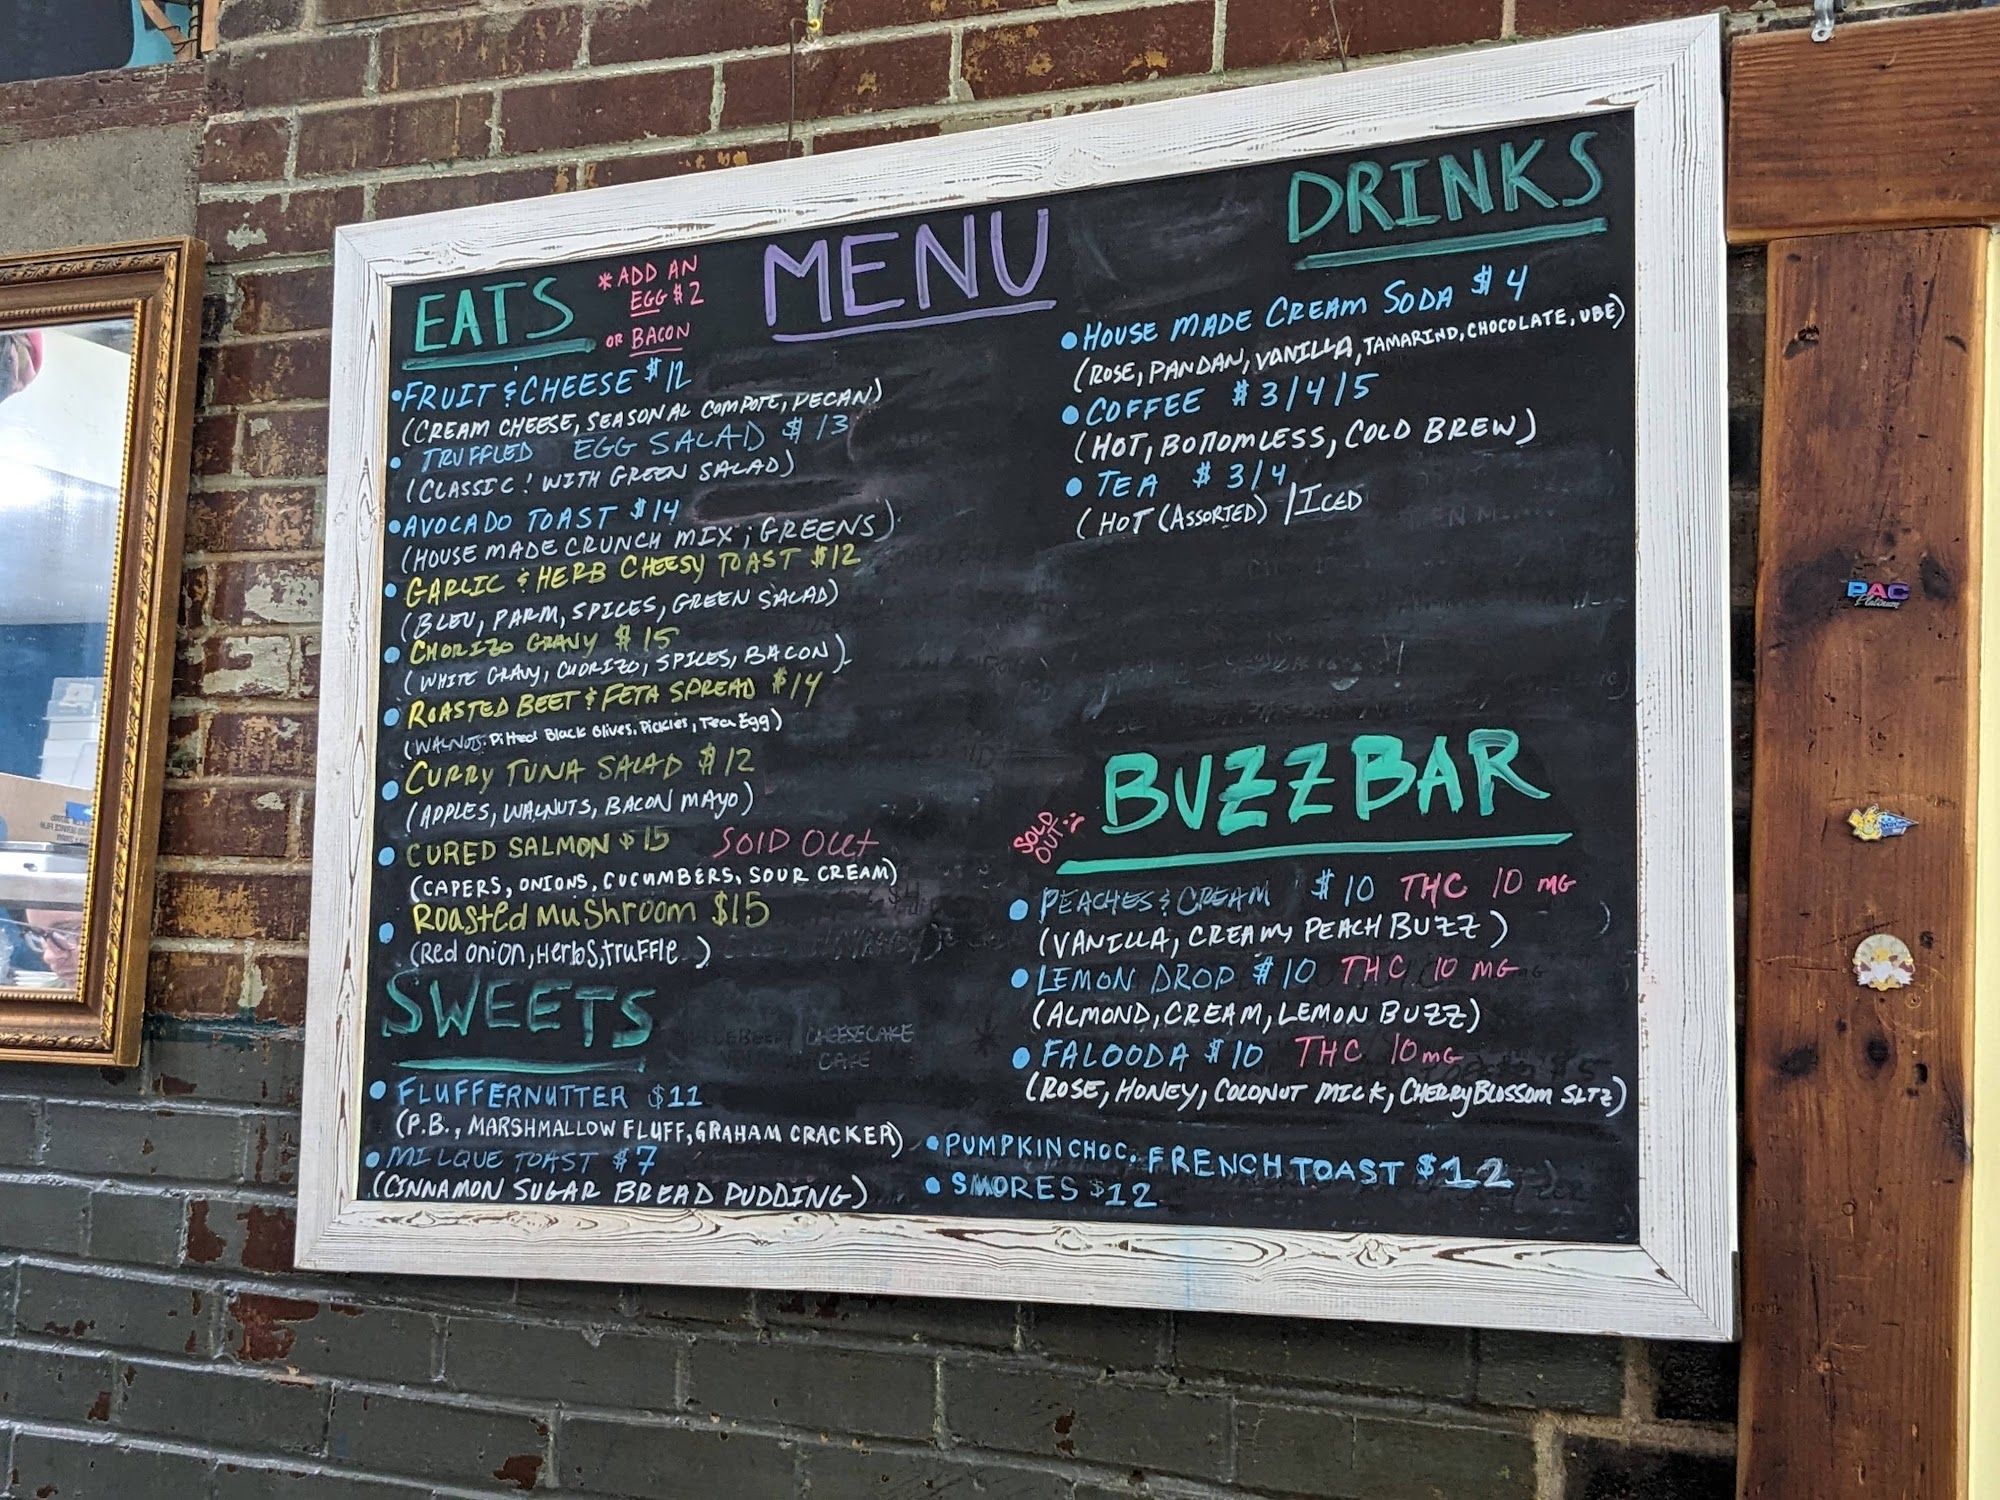 MENU
EATS
* ADD AN
EGG $2
OR BACON
• FRUIT & CHEESE $12
(CREAM CHEESE, SEASONAL COMPOTE, PECAN)
• TRUFFLED EGG SALAD $13
(CLASSIC! WITH GREEN SALAD)
• AVOCADO TOAST $14
(HOUSE MADE CRUNCH MIX ; GREENS)
• GARLIC & HERB CHEESY TOAST $12
(BLEU, PARM, SPICES, GREEN SALAD)
• CHORIZO GRAVY $15
(WHITE GRAVY, CHORIZO, SPICES, BACON)
• ROASTED BEET & FETA SPREAD $14
(WALNUTS, Pitted Black Olives, Pickles, Tea Egg)
• CURRY TUNA SALAD $12
(APPLES, WALNUTS, BACON MAYO)
• CURED SALMON $15 SOlD OUt
(CAPERS, ONIONS, CUCUMBERS, SOUR CREAM)
• Roasted Mushroom $15
(Red onion, Herbs, truffle)
SWEETS
CHEESECAKE
CAKE
• FLUFFERNUTTER $11
(P.B., MARSHMALLOW FLUFF, GRAHAM CRACKER)
• MILQUE TOAST $7
(CINNAMON SUGAR BREAD PUDDING)
• PUMPKIN CHOC. FRENCH TOAST $12
• SMORES $12
DRINKS
• HOUSE MADE CREAM SODA $4
(ROSE, PANDAN, VANILLA, TAMARIND, CHOCOLATE, UBE)
• COFFEE $3/4/5
(HOT, BOTTOMLESS, COLD BREW)
• TEA $3/4
(HOT (ASSORTED) / ICED
BUZZBAR
SOLD
OUT :(
• PEACHES & CREAM $10 THC 10 MG
(VANILLA, CREAM, PEACH BUZZ)
• LEMON DROP $10 THC 10 MG
(ALMOND, CREAM, LEMON BUZZ)
• FALOODA $10 THC 10MG
(ROSE, HONEY, COCONUT MILK, CHERRY BLOSSOM SLTZ)
PAC
Platinum